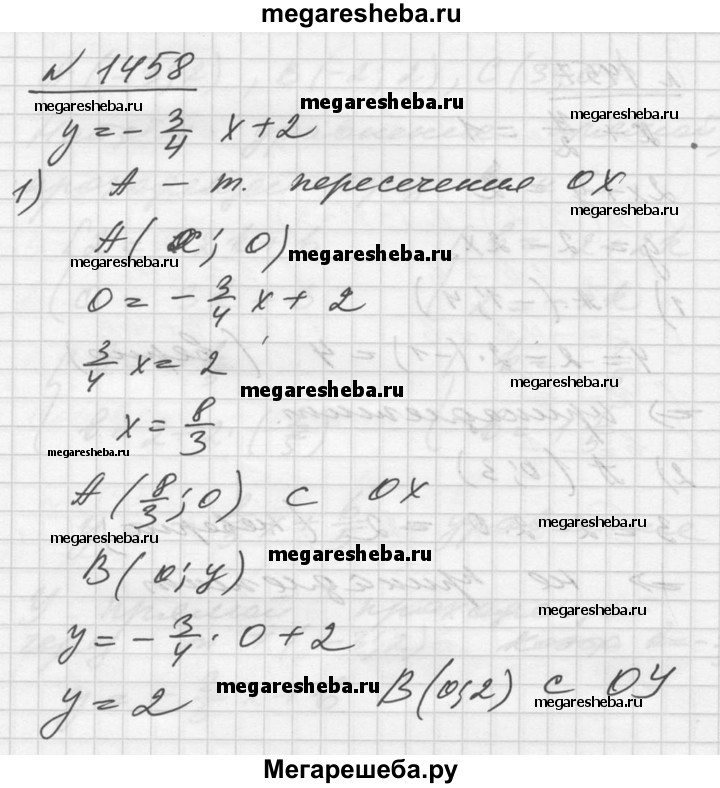 megaresheba.ru
№ 1458
megaresheba.ru megaresheba.ru
y = - 3/4 x + 2
1) А – т. пересечения OX
megaresheba.ru
A(x; 0)
megaresheba.ru megaresheba.ru
0 = - 3/4 x + 2
3/4 x = 2
megaresheba.ru megaresheba.ru
x = 8/3
megaresheba.ru
A(8/3; 0) с OX
megaresheba.ru megaresheba.ru
megaresheba.ru
B(0; y)
megaresheba.ru
y = - 3/4 · 0 + 2
y = 2 megaresheba.ru B(0; 2) с OY
megaresheba.ru
Мегарешеба.ру